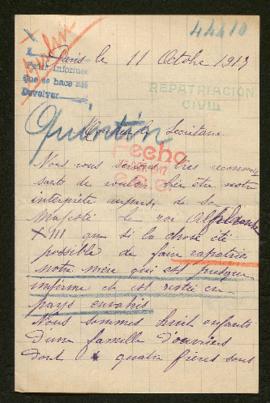 44410
Paris le 11 Octobre 1917
X
Para informe
que se hace alli
Devolver
REPATRIACIÓN
CIVIL
Quentin
Secrétaire
Fecho
Nous vous serions très reconnais
sants de vouloir bien être notre
interprète auprès de sa
Majesté le roi Alphonse
XIII au si la chose été
possible de faire rapatrier
notre mère qui est presque
infirme et est restée en
pays envahis
Nous sommes huit enfants
d'une famille d'ouvriers
dont quatre frères sous